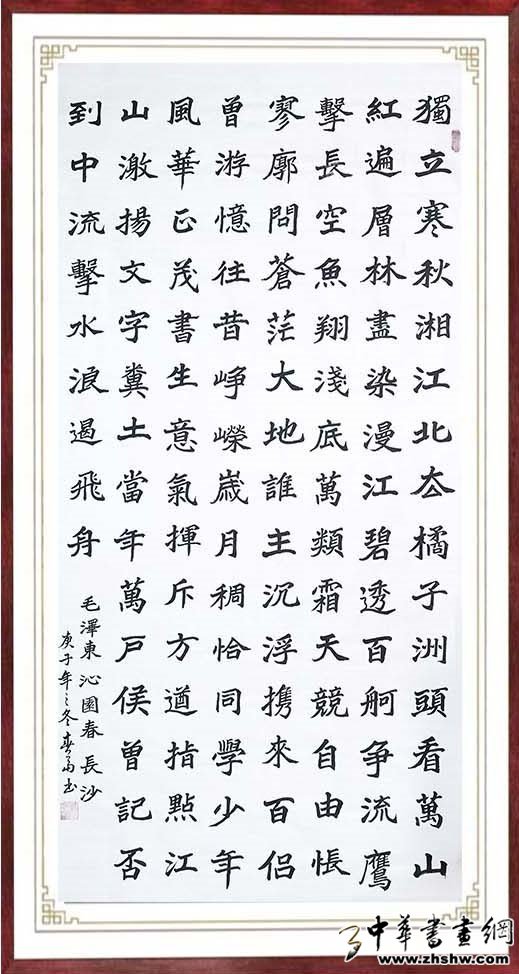 獨立寒秋湘江北去橘子洲頭看萬山
紅遍層林盡染漫江碧透百舸争流鷹
擊長空魚翔淺底萬類霜天競自由悵
寥廓問蒼茫大地誰主沉浮携來百侣
曾游憶往昔崢嶸歲月稠恰同學少年
風華正茂書生意氣揮斥方遒指點江
山激揚文字糞土當年萬戶侯曾記否
到中流擊水浪遏飛舟
毛澤東沁園春 長沙
庚子年之冬
中華書畫網
www.zhshw.com